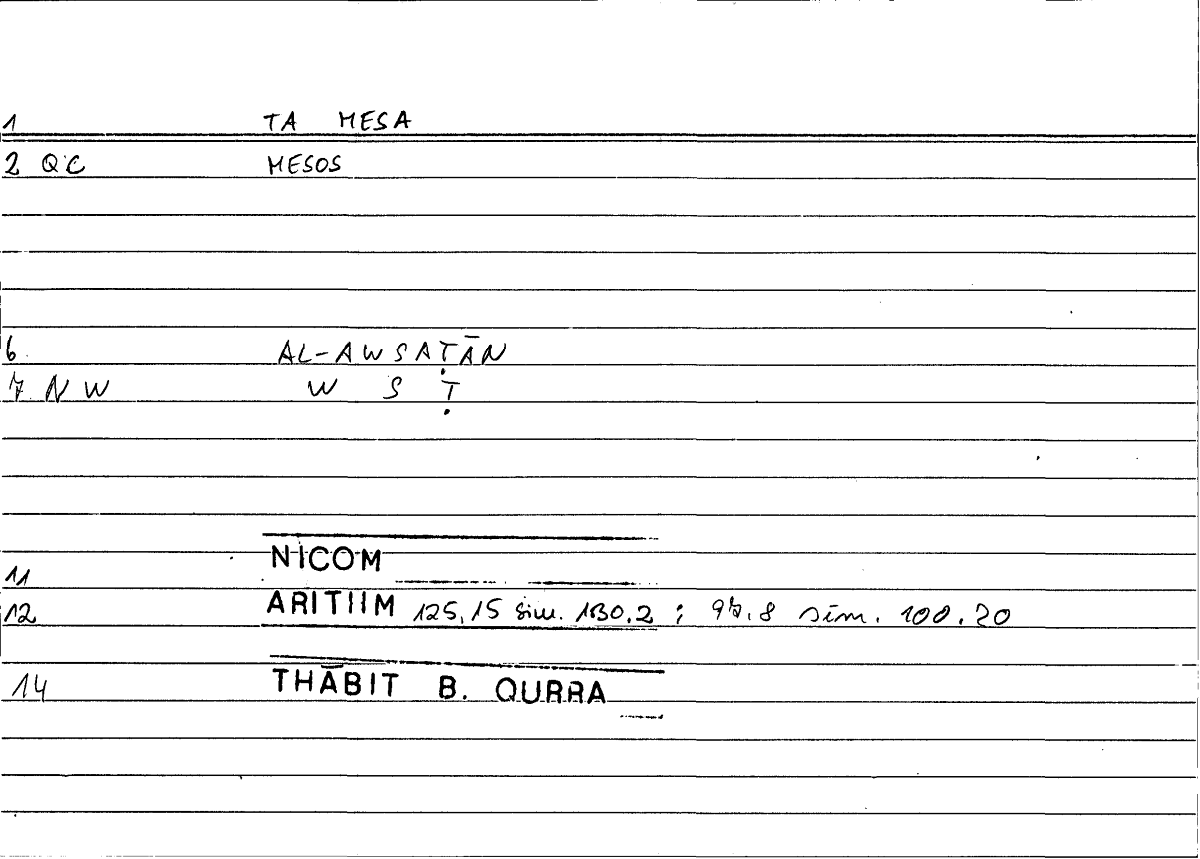 1 TA MESA
2 QC MESOS
6 AL-AWSAṬĀN
7 NW W S Ṭ
11 NICOM
12 ARITIIM 125,15 sim. 130.2 ; 97.8 sim. 100.20
14 THĀBIT B. QURRA